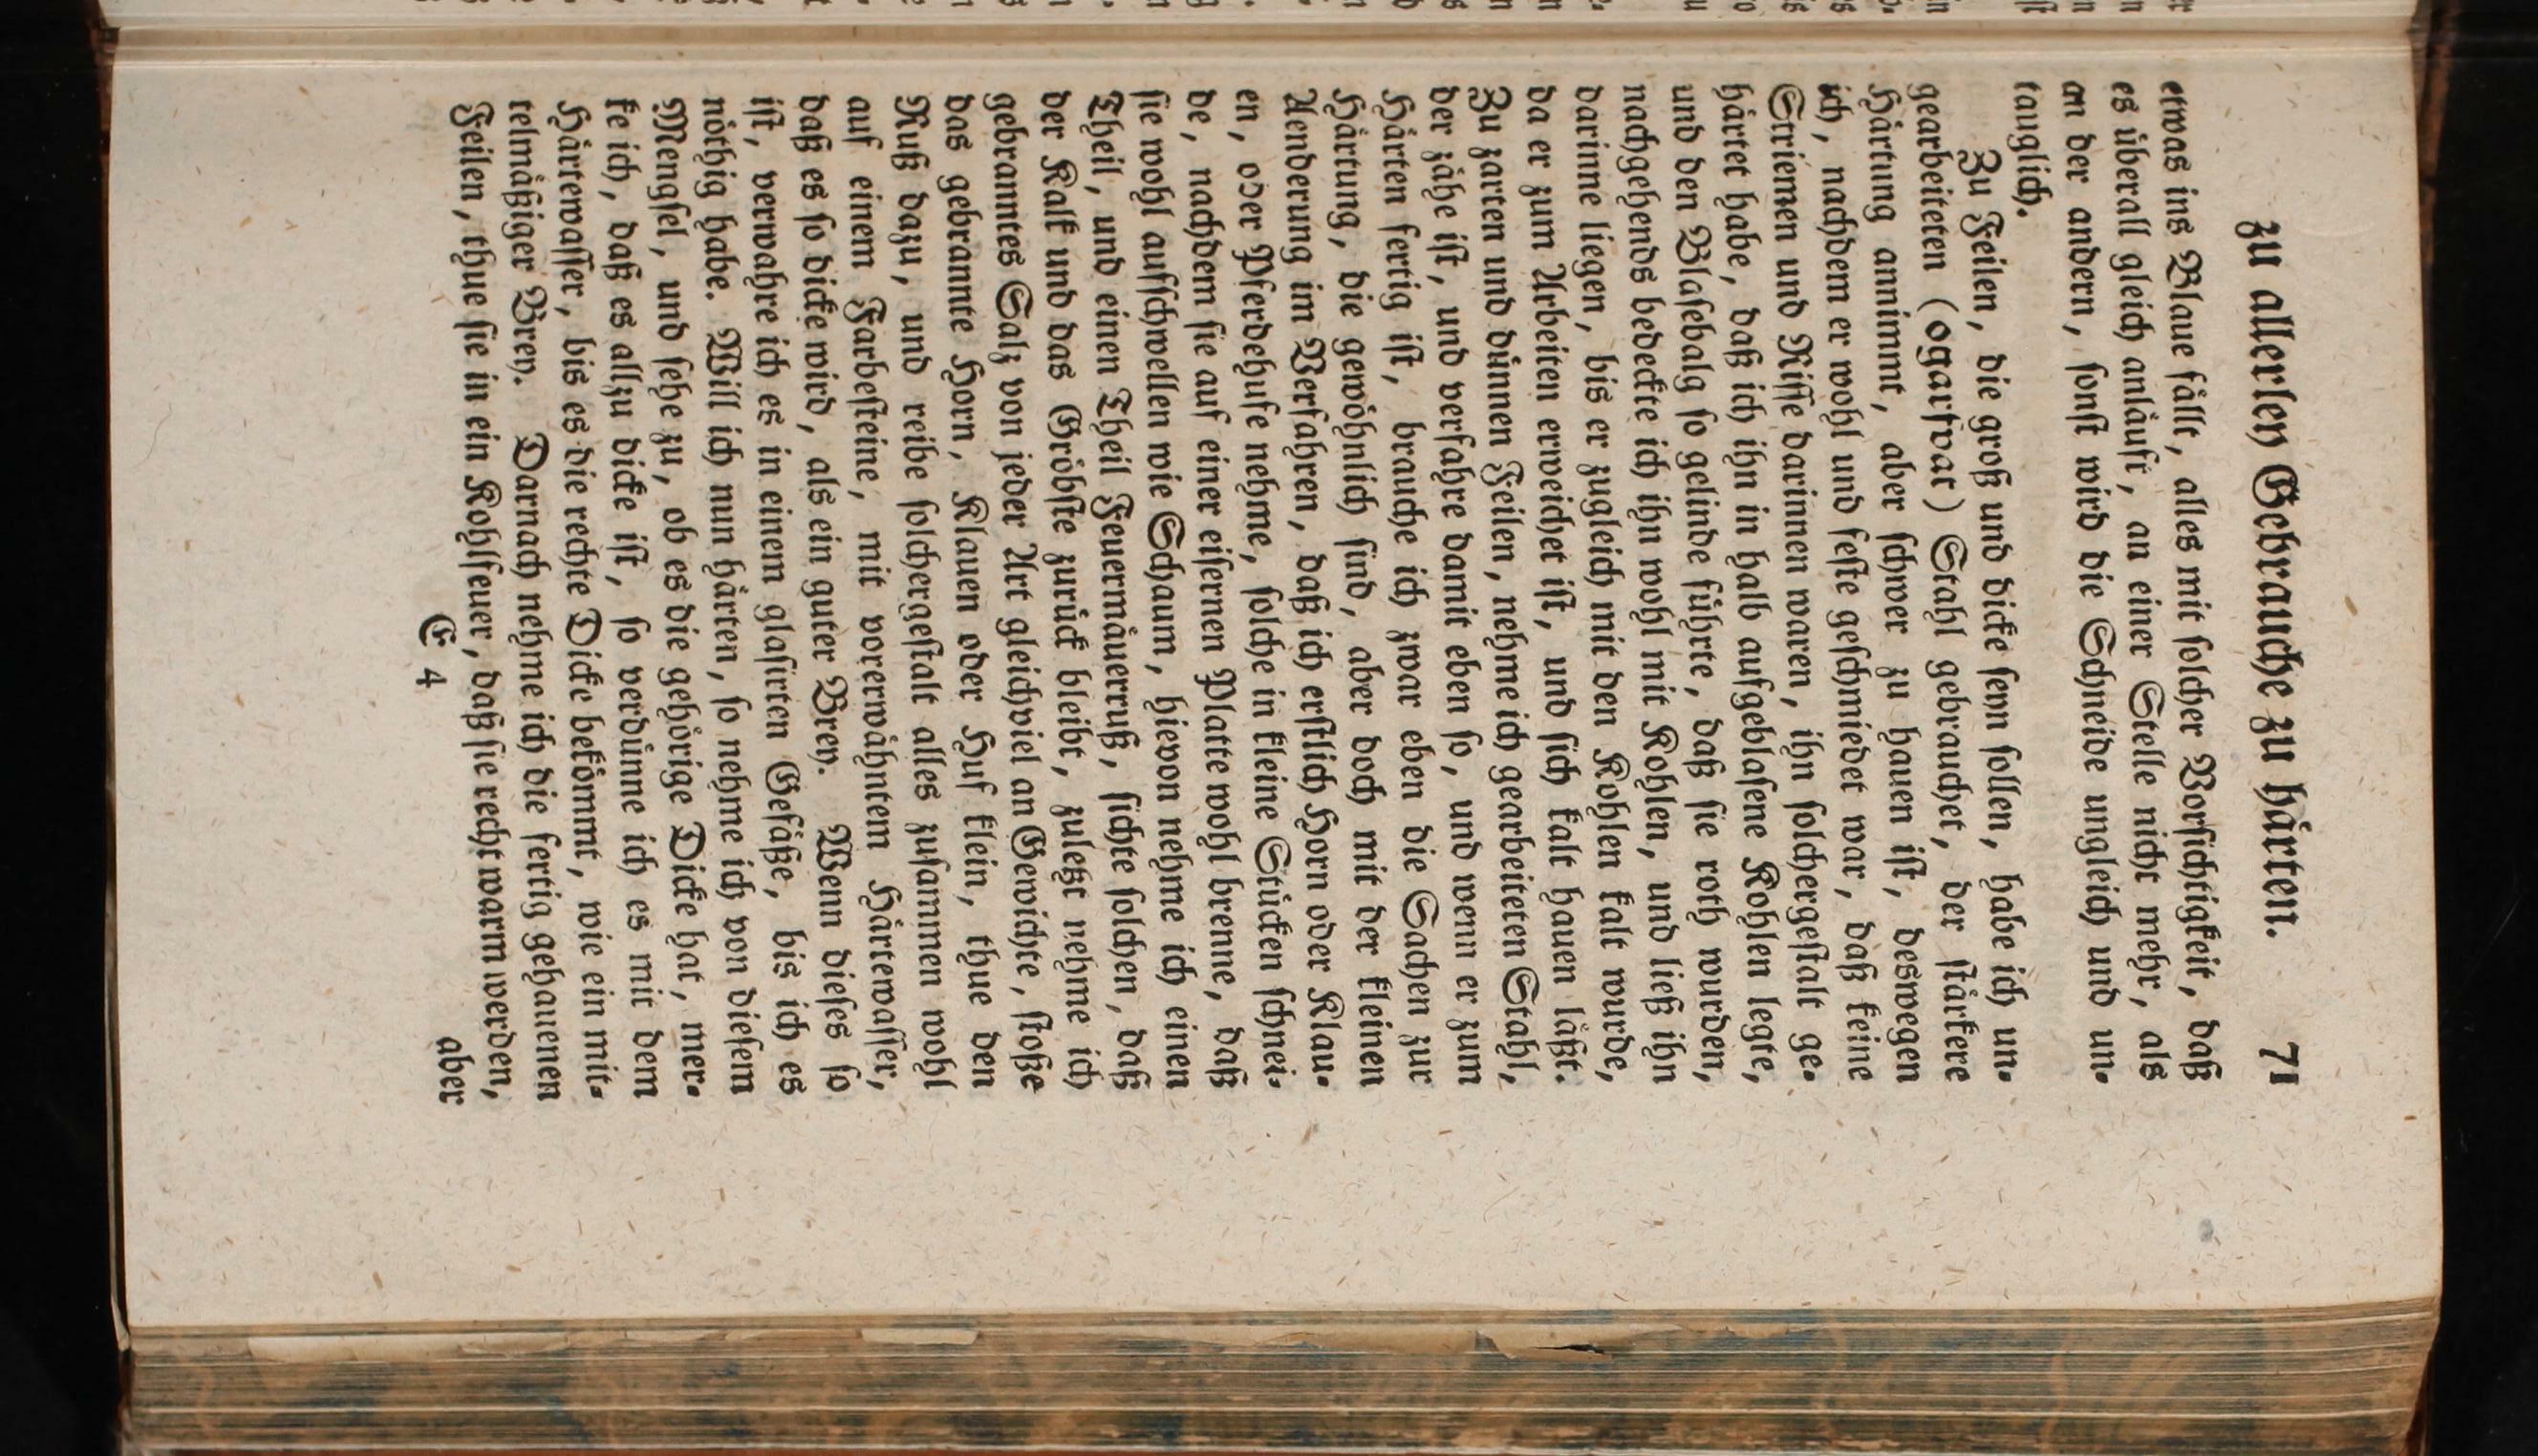 zu allerley Gebrauche zu härten. 71
etwas ins Blaue fällt, alles mit solcher Vorsichtigkeit, daß
es überall gleich anläuft, an einer Stelle nicht mehr, als
an der andern, sonst wird die Schneide ungleich und un-
tauglich.
Zu Feilen, die groß und dicke seyn sollen, habe ich un-
gearbeiteten (ogarfvat) Stahl gebrauchet, der stärkere
Härtung annimmt, aber schwer zu hauen ist, deswegen
ich, nachdem er wohl und feste geschmiedet war, daß keine
Striemen und Risse darinnen waren, ihn solchergestalt ge-
härtet habe, daß ich ihn in halb aufgeblasene Kohlen legte,
und den Blasebalg so gelinde führte, daß sie roth wurden,
nachgehends bedeckte ich ihn wohl mit Kohlen, und ließ ihn
darinne liegen, bis er zugleich mit den Kohlen kalt wurde,
da er zum Arbeiten erweichet ist, und sich kalt hauen läßt.
Zu zarten und dünnen Feilen, nehme ich gearbeiteten Stahl,
der zähe ist, und verfahre damit eben so, und wenn er zum
Härten fertig ist, brauche ich zwar eben die Sachen zur
Härtung, die gewöhnlich sind, aber doch mit der kleinen
Aenderung im Verfahren, daß ich erstlich Horn oder Klau-
en, oder Pferdehufe nehme, solche in kleine Stücken schnei-
de, nachdem sie auf einer eisernen Platte wohl brenne, daß
sie wohl aufschwellen wie Schaum, hievon nehme ich einen
Theil, und einen Theil Feuermäuerruß, sichte solchen, daß
der Kalk und das Gröbste zurück bleibt, zuletzt nehme ich
gebranntes Salz von jeder Art gleichviel an Gewichte, stoße
das gebrannte Horn, Klauen oder Huf klein, thue den
Ruß dazu, und reibe solchergestalt alles zusammen wohl
auf einem Farbesteine, mit vorerwähntem Härtewasser,
daß es so dicke wird, als ein guter Brey. Wenn dieses so
ist, verwahre ich es in einem glasirten Gefäße, bis ich es
nöthig habe. Will ich nun härten, so nehme ich von diesem
Mengsel, und sehe zu, ob es die gehörige Dicke hat, mer-
ke ich, daß es allzu dicke ist, so verdünne ich es mit dem
Härtewasser, bis es die rechte Dicke bekömmt, wie ein mit-
telmäßiger Brey. Darnach nehme ich die fertig gehauenen
Feilen, thue sie in ein Kohlfeuer, daß sie recht warm werden,
E 4 aber